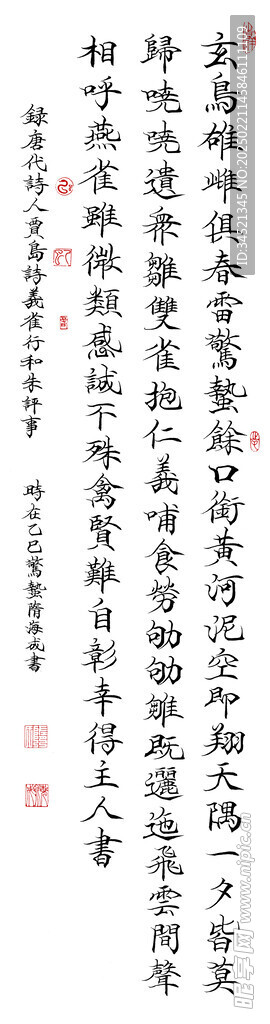 玄鳥雄雌俱春雷驚蟄餘口銜黃河泥空即翔天隅一夕皆莫
歸嘵嘵遺眾雛雙雀抱仁義哺食勞劬劬雛既邐迤飛雲間聲
相呼燕雀雖微類感誠不殊禽賢難自彰幸得主人書
録唐代詩人賈島詩義雀行和朱評事 時在乙巳驚蟄隋海成書
ID:34321345 NO:20250221143846111109
昵图网 www.nipic.cn